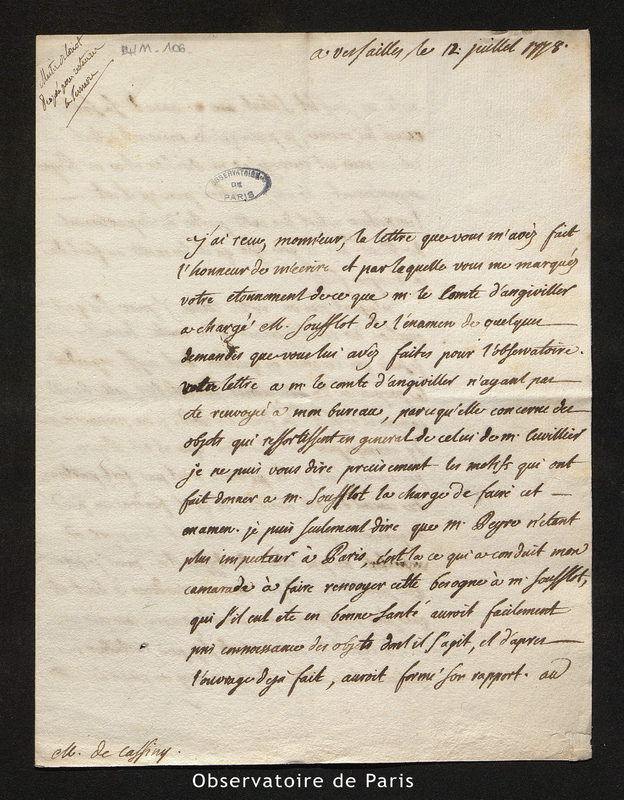 D4/M - 106
a versailles, le 12. juillet 1778.
OBSERVATOIRE
DE
PARIS
j'ai recue, monsieur, la lettre que vous m'avés fait
l'honneur de m'ecrire et par laquelle vous me marqués
votre etonnement de ce que m. le Comte d'angiviller
a chargé M. Soufflot de l'examen de quelques
demandes que vous lui avés faites pour l'observatoire.
votre lettre a m. le comte d'angiviller n'ayant pas
eté renvoyée a mon bureau, parcequ'elle concerne des
objets qui ressortissent en general de celui de m. Cuvillier
je ne puis vous dire precisement les motifs qui ont
fait donner a m. Soufflot la charge de faire cet
examen. je puis seulement dire que m. Peyre n'etant
plus inspecteur à Paris, c'est la ce qui a conduit mon
camarade à faire renvoyer cette besogne à m. Soufflot,
qui s'il eut eté en bonne santé auroit facilement
pris connoissance des objets dont il s'agit, et d'apres
l'ouvrage deja fait, auroit formé son rapport. au
M. de Cassiny.
Observatoire de Paris